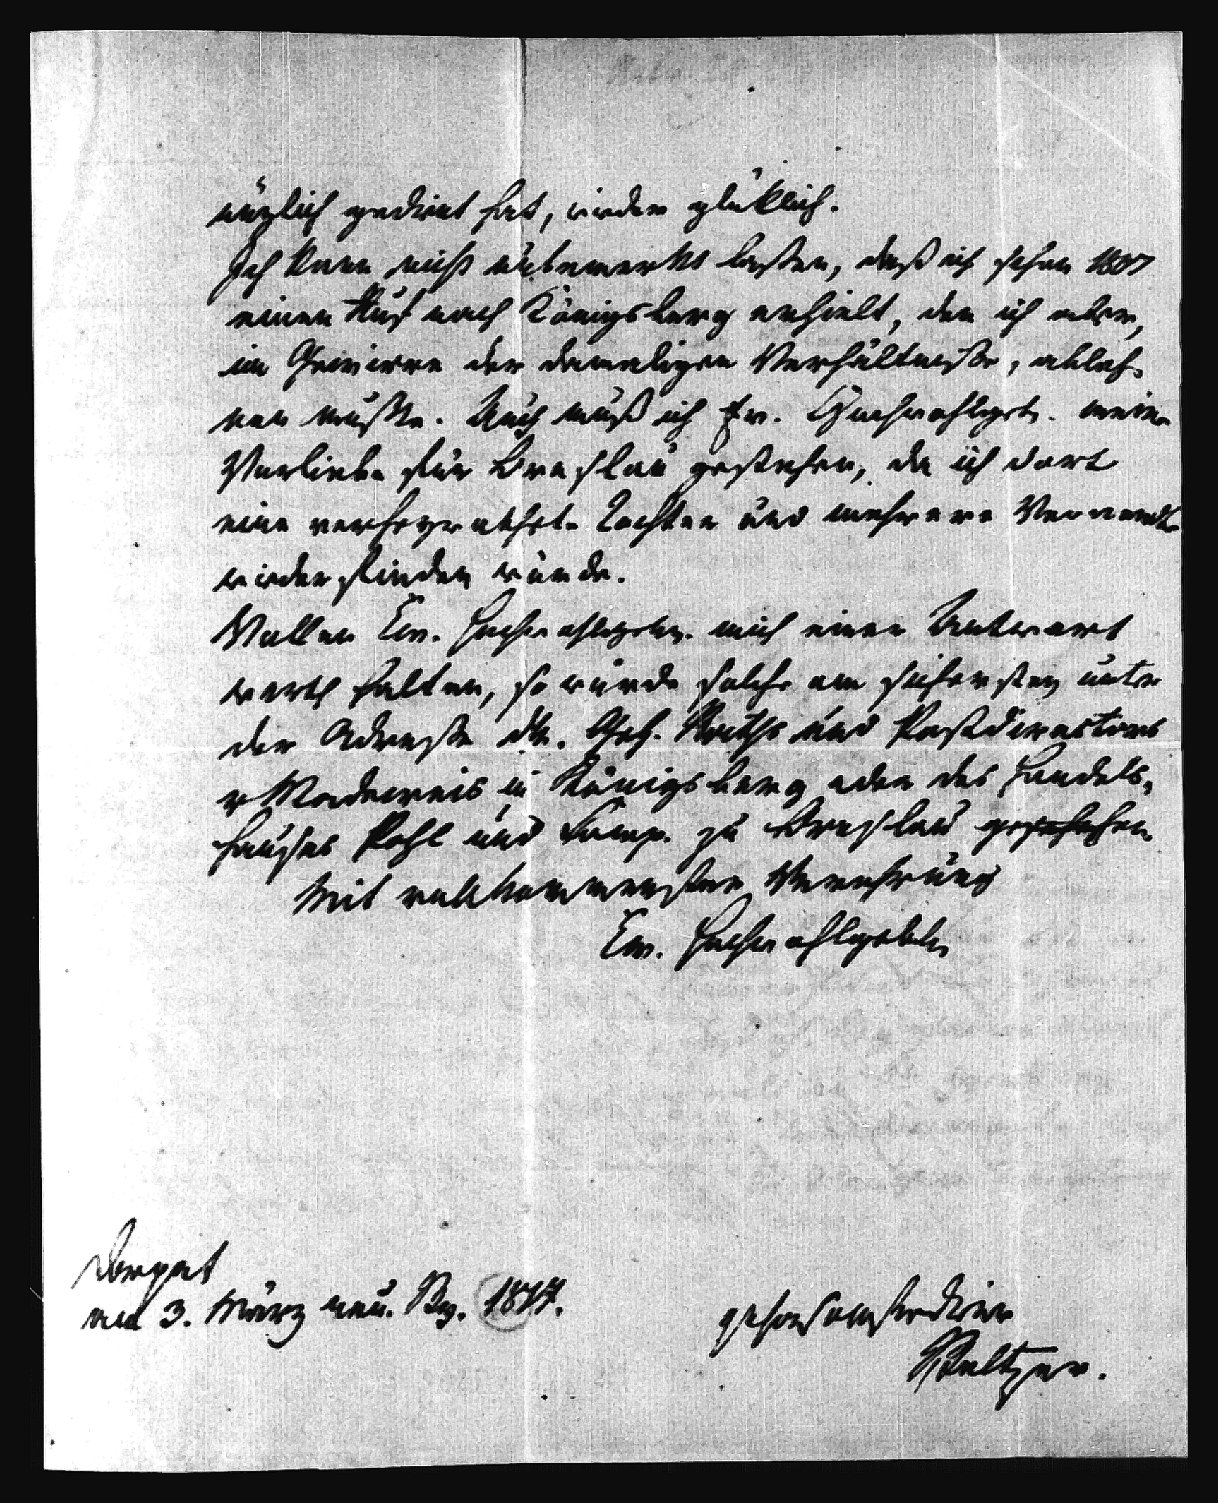 nützlich gedient hat, wieder glüklich.
Ich kann nicht unbemerkt lassen, daß ich schon 1807
einen Ruf nach Königsberg erhielt, den ich aber,
im Gewirre der damaligen Verhältnisse, ableh-
nen mußte. Auch muß ich Ew. Hochwohlgeb. meine
Vorliebe für Breslau gestehen, da ich dort
eine verheyrathete Tochter und mehrere Verwandte
wieder finden würde.
Wollen Ew. Hochwohlgeb. mich einer Antwort
werth halten, so würde solche am sichersten unter
der Adresse des. Geh. Raths und Postdirectors
v Madeweis in Königsberg oder des Handels-
hauses Pohl und Comp. zu Breslau geschehen.
Mit vollkommenster Verehrung
Ew. Hochwohlgebohrn
Dorpat
am 3. März neu. 1817.
gehorsamster Diener